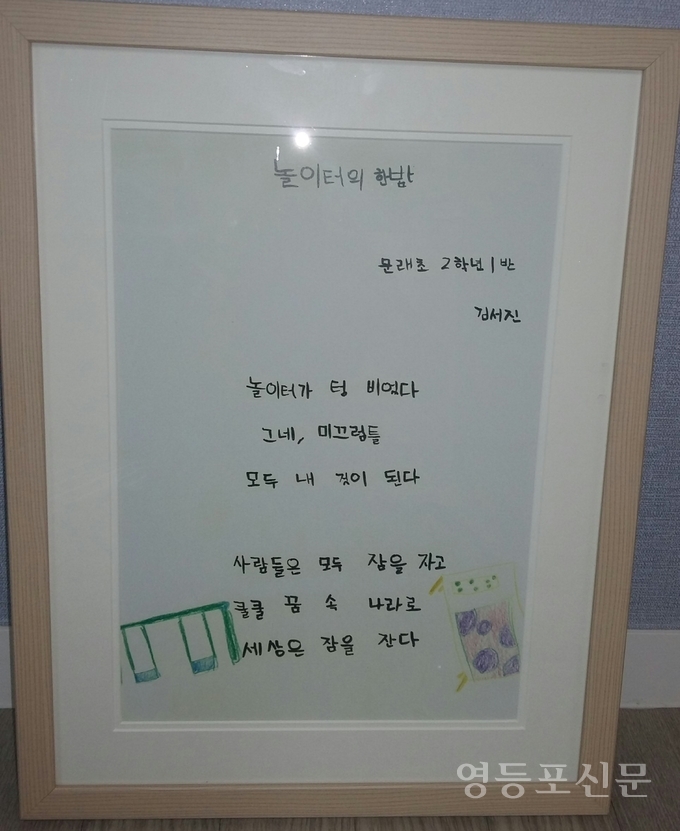 놀이터의 한밤
문래초 2학년 1반
김서진
놀이터가 텅 비었다
그네, 미끄럼틀
모두 내 것이 된다
사람들은 모두 잠을 자고
쿨쿨 꿈 속 나라로
세상은 잠을 잔다
영등포신문